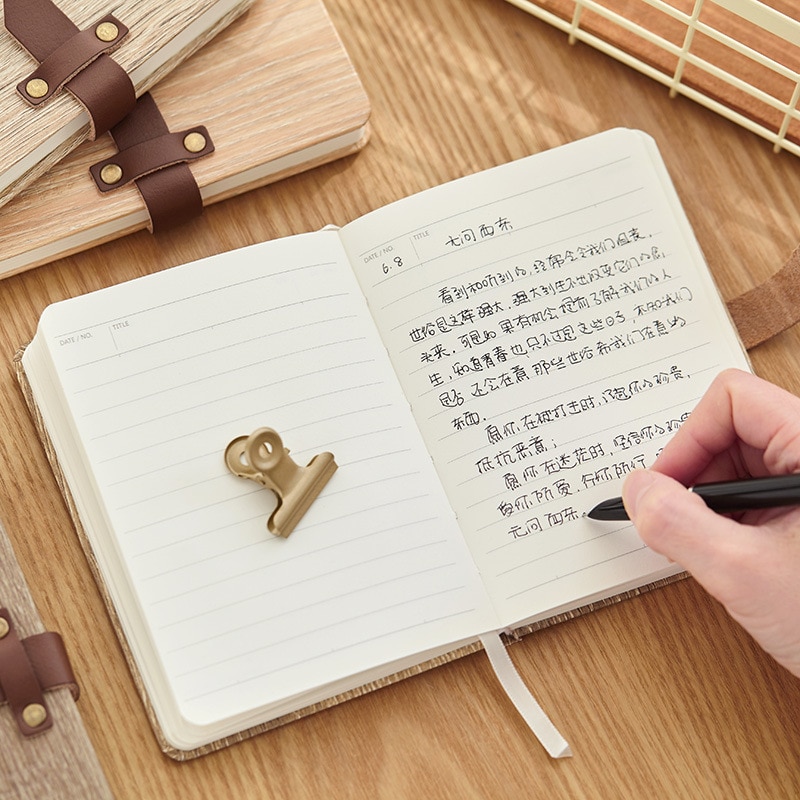 DATE / NO.
TITLE
DATE / NO.
TITLE
6.8
无问西东
看到和听到的,经常会令我们沮丧,
世俗是这样强大,强大到生不出改变它们的
来。可是如果有机会提前了解我们的人
生,知道青春也只不过是这些日子,不知我们
是否还会在意那些世俗希我们在意的
东西。
愿你在被打击时,记起你的珍贵,
抵抗恶意;
愿你在迷茫时,坚信你的珍贵
爱你所爱,行你所行,
无问西东。